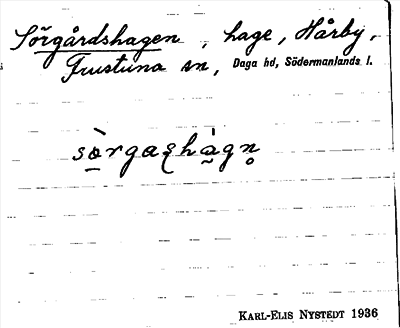 Sörgårdshagen, hage, Hårby,
Frustuna sn, Daga hd, Södermanlands l.
KARL-ELIS NYSTEDT 1936